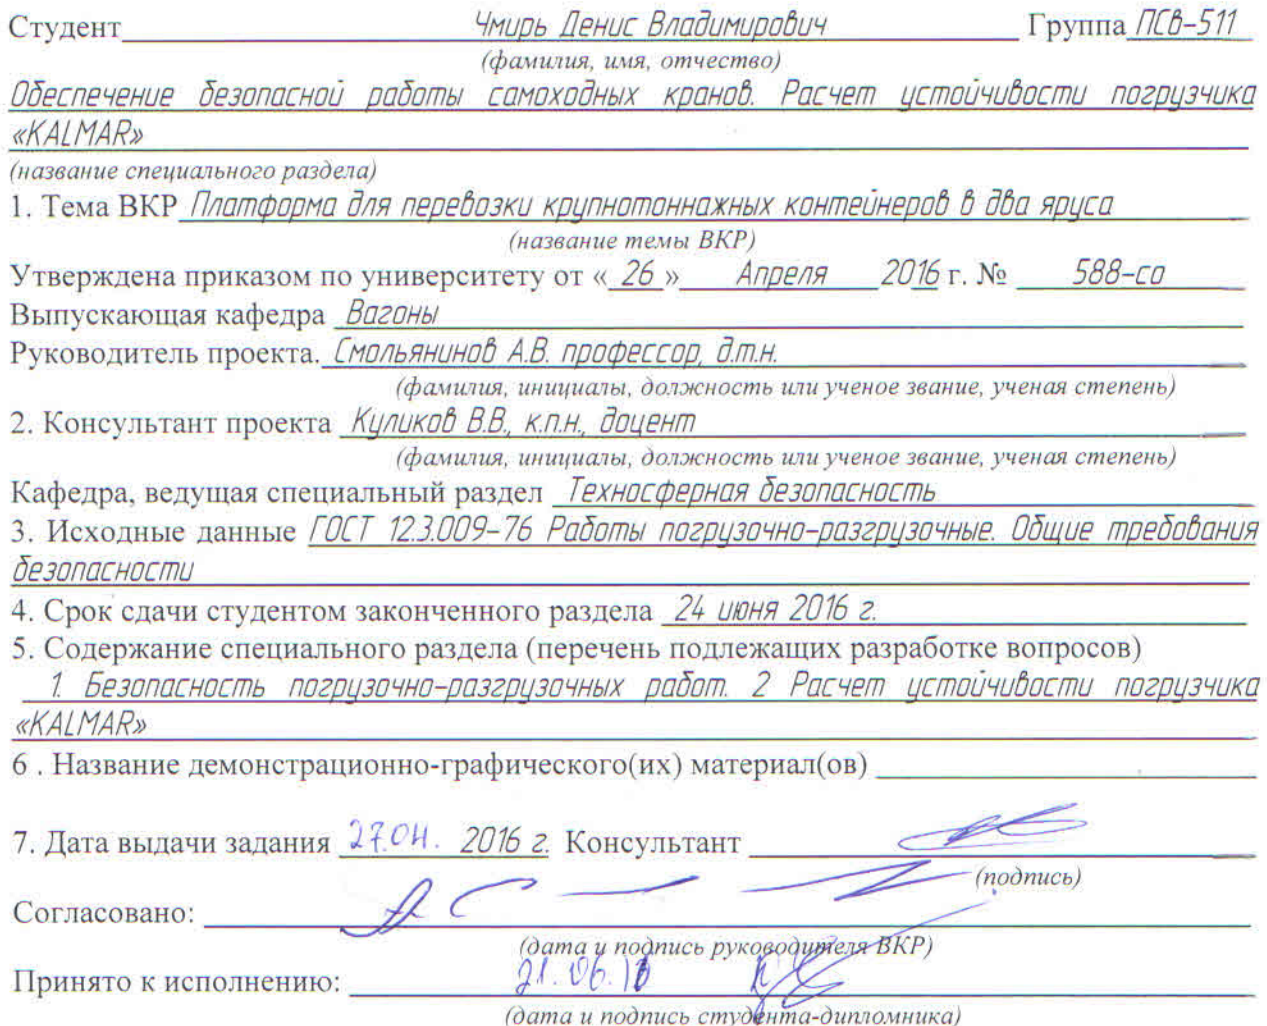 Студент Чмирь Денис Владимирович Группа ПСв-511
(фамилия, имя, отчество)
Обеспечение безопасной работы самоходных кранов. Расчет устойчивости погрузчика
«KALMAR»
(название специального раздела)
1. Тема ВКР Платформа для перевозки крупнотоннажных контейнеров в два яруса
(название темы ВКР)
Утверждена приказом по университету от « 26 » Апреля 2016 г. № 588-со
Выпускающая кафедра Вагоны
Руководитель проекта. Смольянинов А.В. профессор, д.т.н.
(фамилия, инициалы, должность или ученое звание, ученая степень)
2. Консультант проекта Куликов В.В., к.п.н., доцент
(фамилия, инициалы, должность или ученое звание, ученая степень)
Кафедра, ведущая специальный раздел Техносферная безопасность
3. Исходные данные ГОСТ 12.3.009-76 Работы погрузочно-разгрузочные. Общие требования
безопасности
4. Срок сдачи студентом законченного раздела 24 июня 2016 г.
5. Содержание специального раздела (перечень подлежащих разработке вопросов)
1. Безопасность погрузочно-разгрузочных работ. 2 Расчет устойчивости погрузчика
«KALMAR»
6 . Название демонстрационно-графического(их) материал(ов)
7. Дата выдачи задания 27.04. 2016 г. Консультант
(подпись)
Согласовано:
(дата и подпись руководителя ВКР)
Принято к исполнению: 21.06.16
(дата и подпись студента-дипломника)